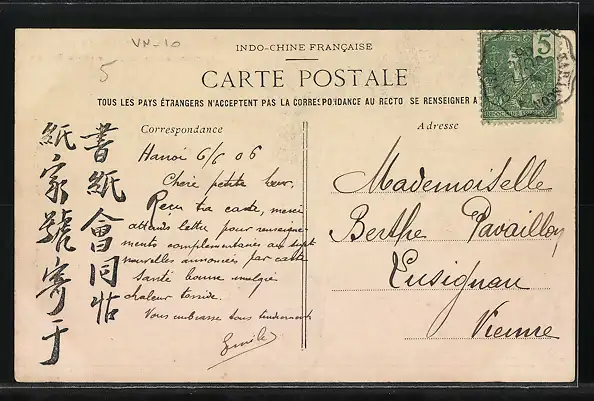 VN-10
5
INDO-CHINE FRANÇAISE
CARTE POSTALE
TOUS LES PAYS ÉTRANGERS N'ACCEPTENT PAS LA CORRESPONDANCE AU RECTO SE RENSEIGNER A
5
Correspondance
Adresse
Hanoi 6/6 06
Chère petite sœur,
Reçu ta carte, merci
attends lettre pour renseigne-
ments complémentaires au sujet
nouvelles annoncées par carte
Santé bonne malgré
chaleur torride.
Vous embrasse tous tendrement
Emile
Mademoiselle
Berthe Pavaillon
Lusignan
Vienne
書紙會同帖
紙家號寄于